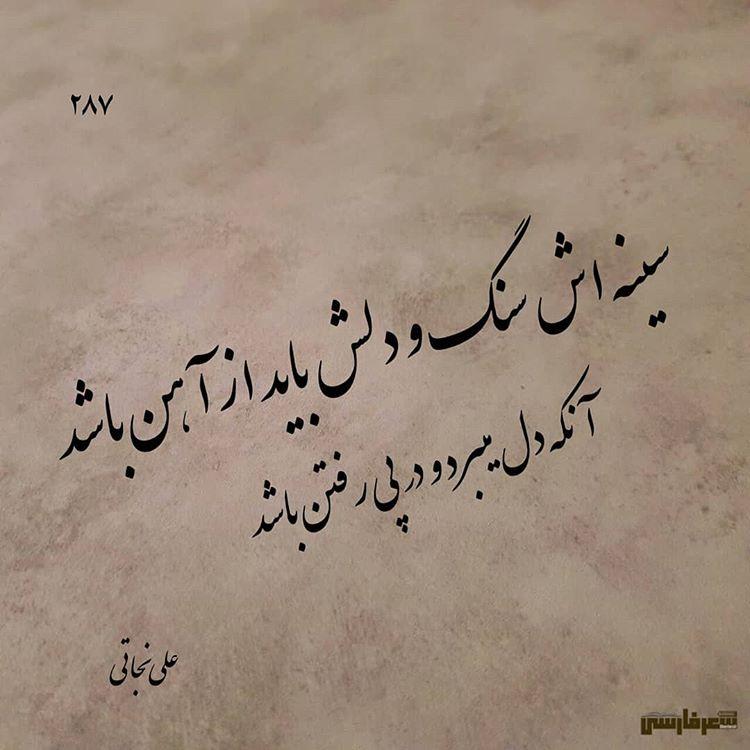 ۲۸۷
سینه اش سنگ و دلش باید از آهن باشد
آنکه دل میبرد و در پی رفتن باشد
علی نجاتی
شعر فارسی